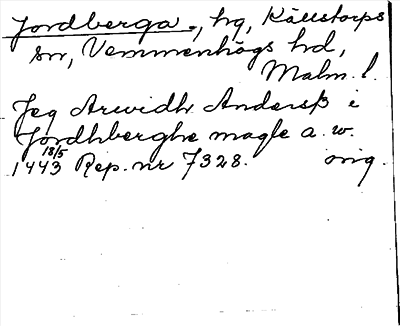 Jordberga, hg, Källstorps
sn, Vemmenhögs hd,
Malm. l.
Jeg Arwidh Andersß i
Jordhberghe magle a. w.
1443 18/5 Rep. nr 7328. orig.